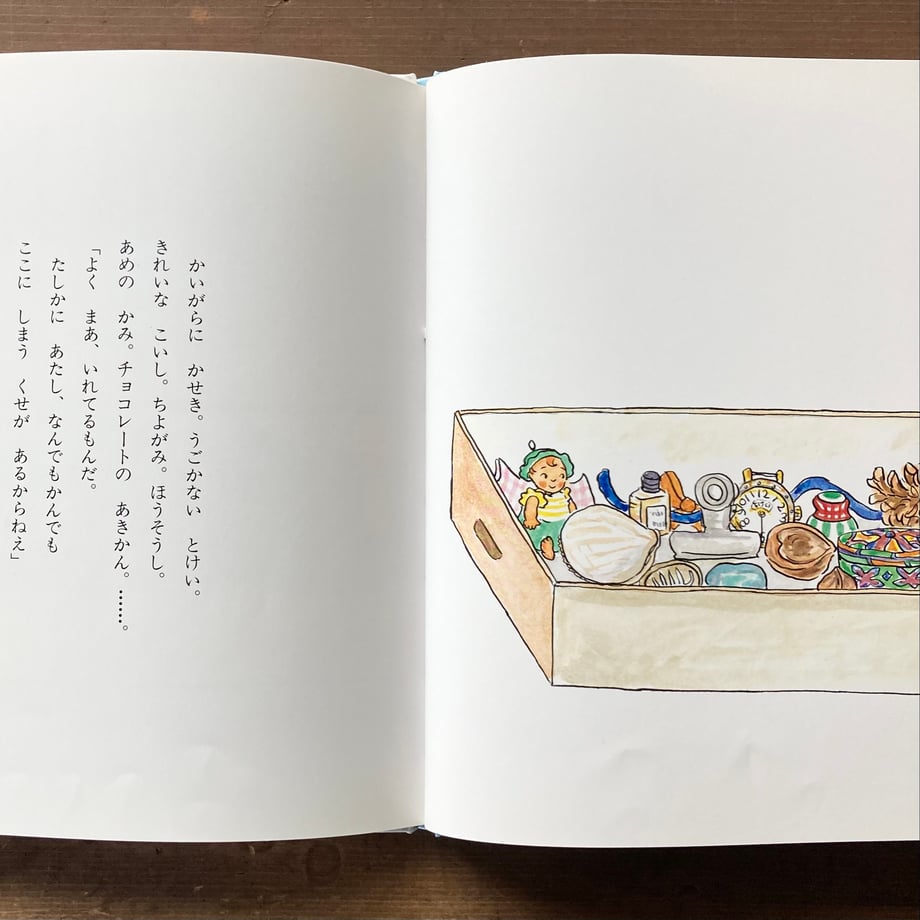 かいがらに　かせき。うごかない　とけい。
きれいな　こいし。ちよがみ。ほうそうし。
あめの　かみ。チョコレートの　あきかん。……。
「よく　まあ、いれてるもんだ。
たしかに　あたし、なんでもかんでも
ここに　しまう　くせが　あるからねえ」